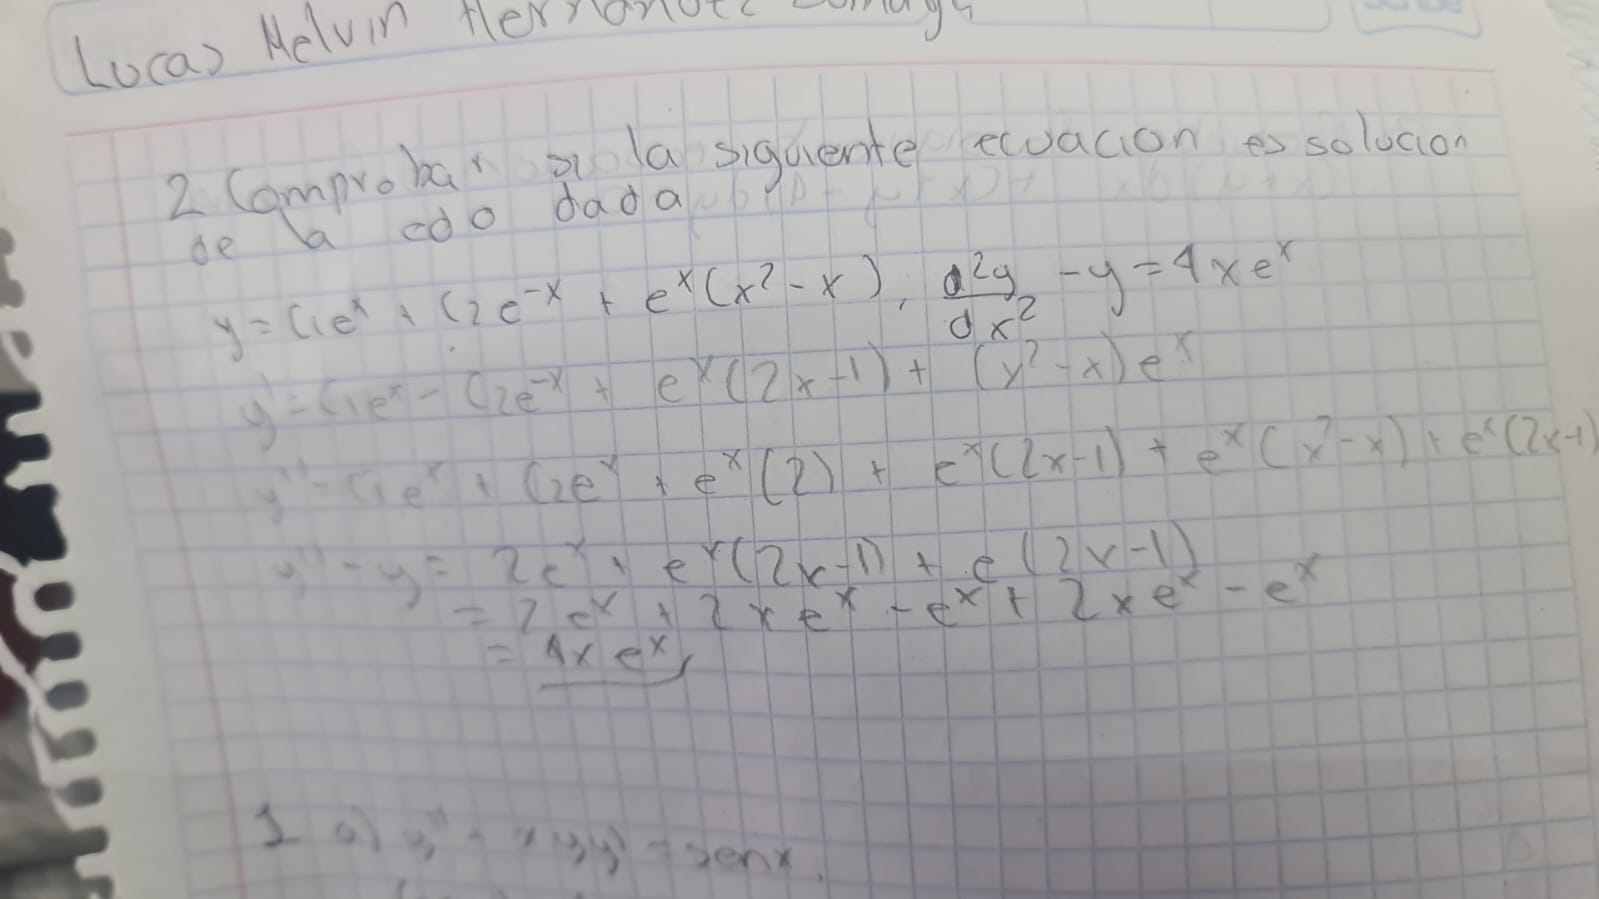 Lucas Melvin Hernandez
2 Comprobar si la siguiente ecuacion es solucion
de la edo dada
y = C1e^x + C2e^-x + e^x(x^2 - x), d^2y/dx^2 - y = 4xe^x
y' = C1e^x - C2e^-x + e^x(2x-1) + (x^2 - x)e^x
y'' = C1e^x + C2e^x + e^x(2) + e^x(2x-1) + e^x(x^2 - x) + e^x(2x-1)
y'' - y = 2e^x + e^x(2x-1) + e(2x-1)
= 2e^x + 2xe^x - e^x + 2xe^x - e^x
= 4xe^x
1 a) = senx